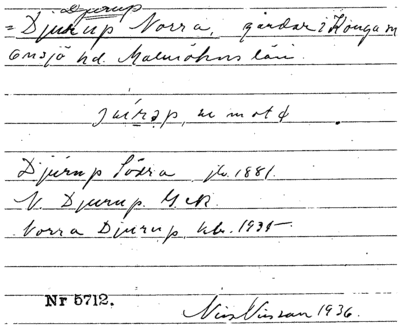 Djurup
= Djurup Norra, gårdar i Konga sn
Onsjö hd. Malmöhus län.
Djurup Södra jb. 1881.
N. Djurup GK
Norra Djurup, kbr. 1935
Nr 5712.
Nils Nilsson 1936.